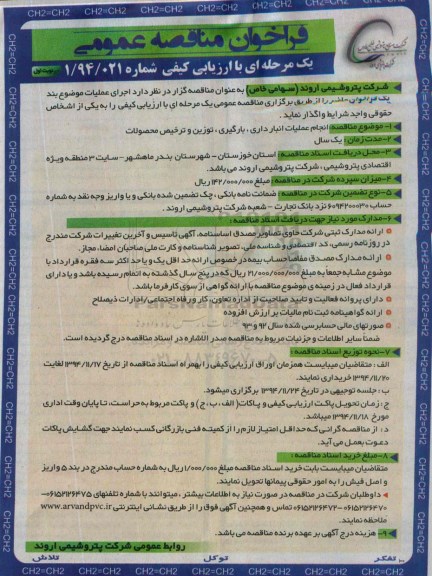 CH2=CH2 CH2=CH2 CH2=CH2 CH2=CH2 CH2=CH2 CH2=CH2
فراخوان مناقصه عمومی
یک مرحله ای با ارزیابی کیفی شماره ۱/۹۴/۰۲۱
نوبت اول
شرکت پتروشیمی اروند (سهامی خاص) به عنوان مناقصه گزار در نظر دارد اجرای عملیات موضوع بند
یک فراخوان از طریق برگزاری مناقصه عمومی یک مرحله ای با ارزیابی کیفی را به یکی از اشخاص
حقوقی واجد شرایط واگذار نماید.
۱- موضوع مناقصه: انجام عملیات انبارداری، بارگیری، توزین و ترخیص محصولات
۲- مدت زمان: یک سال
۳- محل دریافت اسناد مناقصه: استان خوزستان - شهرستان بندر ماهشهر - سایت ۳ منطقه ویژه
اقتصادی پتروشیمی، شرکت پتروشیمی اروند می باشد.
۴- میزان سپرده شرکت در مناقصه: مبلغ ۱۴۲/۰۰۰/۰۰۰ ریال
۵- نوع تضمین شرکت در مناقصه: ضمانت نامه بانکی، چک تضمین شده بانکی و یا واریز وجه نقد به شماره
حساب ۶۰۹۴۲۰۰۰۳۰ نزد بانک تجارت - شعبه شرکت پتروشیمی اروند.
۶- مدارک مورد نیاز جهت دریافت اسناد مناقصه:
ارائه مدارک ثبتی شرکت حاوی تصاویر مصدق اساسنامه، آگهی تاسیس و آخرین تغییرات شرکت مندرج
در روزنامه رسمی، کد اقتصادی و شناسه ملی، تصویر شناسنامه و کارت ملی صاحبان امضاء مجاز.
ارائه مدارک مصدق مفاصاحساب بیمه در خصوص ارائه حد اقل یک و یا حد اکثر سه فقره قرارداد با
موضوع مشابه جمعاً به مبلغ ۲۱/۰۰۰/۰۰۰/۰۰۰ ریال که در پنج سال گذشته به اتمام رسیده باشد و یا دارای
قرارداد فعال در زمینه ی موضوع مناقصه با ارائه گواهی از سوی کارفرما باشد.
دارای پروانه فعالیت و تایید صلاحیت از اداره تعاون، کار و رفاه اجتماعی/ادارات ذیصلاح
ارائه گواهینامه ثبت نام مالیات بر ارزش افزوده
صورتهای مالی حسابرسی شده سال ۹۲ و ۹۳
ضمنا سایر اطلاعات و جزئیات مربوط به مناقصه صدر الاشاره در اسناد مناقصه درج گردیده است.
۷- نحوه توزیع اسناد مناقصه:
الف: متقاضیان میبایست همزمان اوراق ارزیابی کیفی را بهمراه اسناد مناقصه از تاریخ ۱۳۹۴/۱۱/۱۷ لغایت
۱۳۹۴/۱۱/۲۰ خریداری نمایند.
ب: جلسه توجیهی در تاریخ ۱۳۹۴/۱۱/۲۴ برگزاری میشود.
ج: زمان تحویل پاکت ارزیابی کیفی و پاکات (الف، ب، ج) و پاکت مربوط به حراست، تا پایان وقت اداری
مورخ میباشد.
د: از مناقصه گرانی که حداقل امتیاز لازم را از کمیته فنی بازرگانی کسب نمایند جهت گشایش پاکات
دعوت بعمل می آید.
۸- مبلغ خرید اسناد مناقصه:
متقاضیان میبایست بابت خرید اسناد مناقصه مبلغ ۱/۰۰۰/۰۰۰ ریال به شماره حساب مندرج در بند ۵ واریز
و اصل فیش را به امور حقوقی پیمانها تحویل نمایند.
داوطلبان شرکت در مناقصه در صورت نیاز به اطلاعات بیشتر، میتوانند با شماره تلفنهای
تماس و همچنین آگهی فوق را از طریق نشانی اینترنتی www.arvandpvc.ir
ملاحظه نمایند.
۹- هزینه درج آگهی بر عهده برنده مناقصه می باشد.
روابط عمومی شرکت پتروشیمی اروند
تفکر توکل تلاش
CH2=CH2 CH2=CH2 CH2=CH2 CH2=CH2 CH2=CH2 CH2=CH2